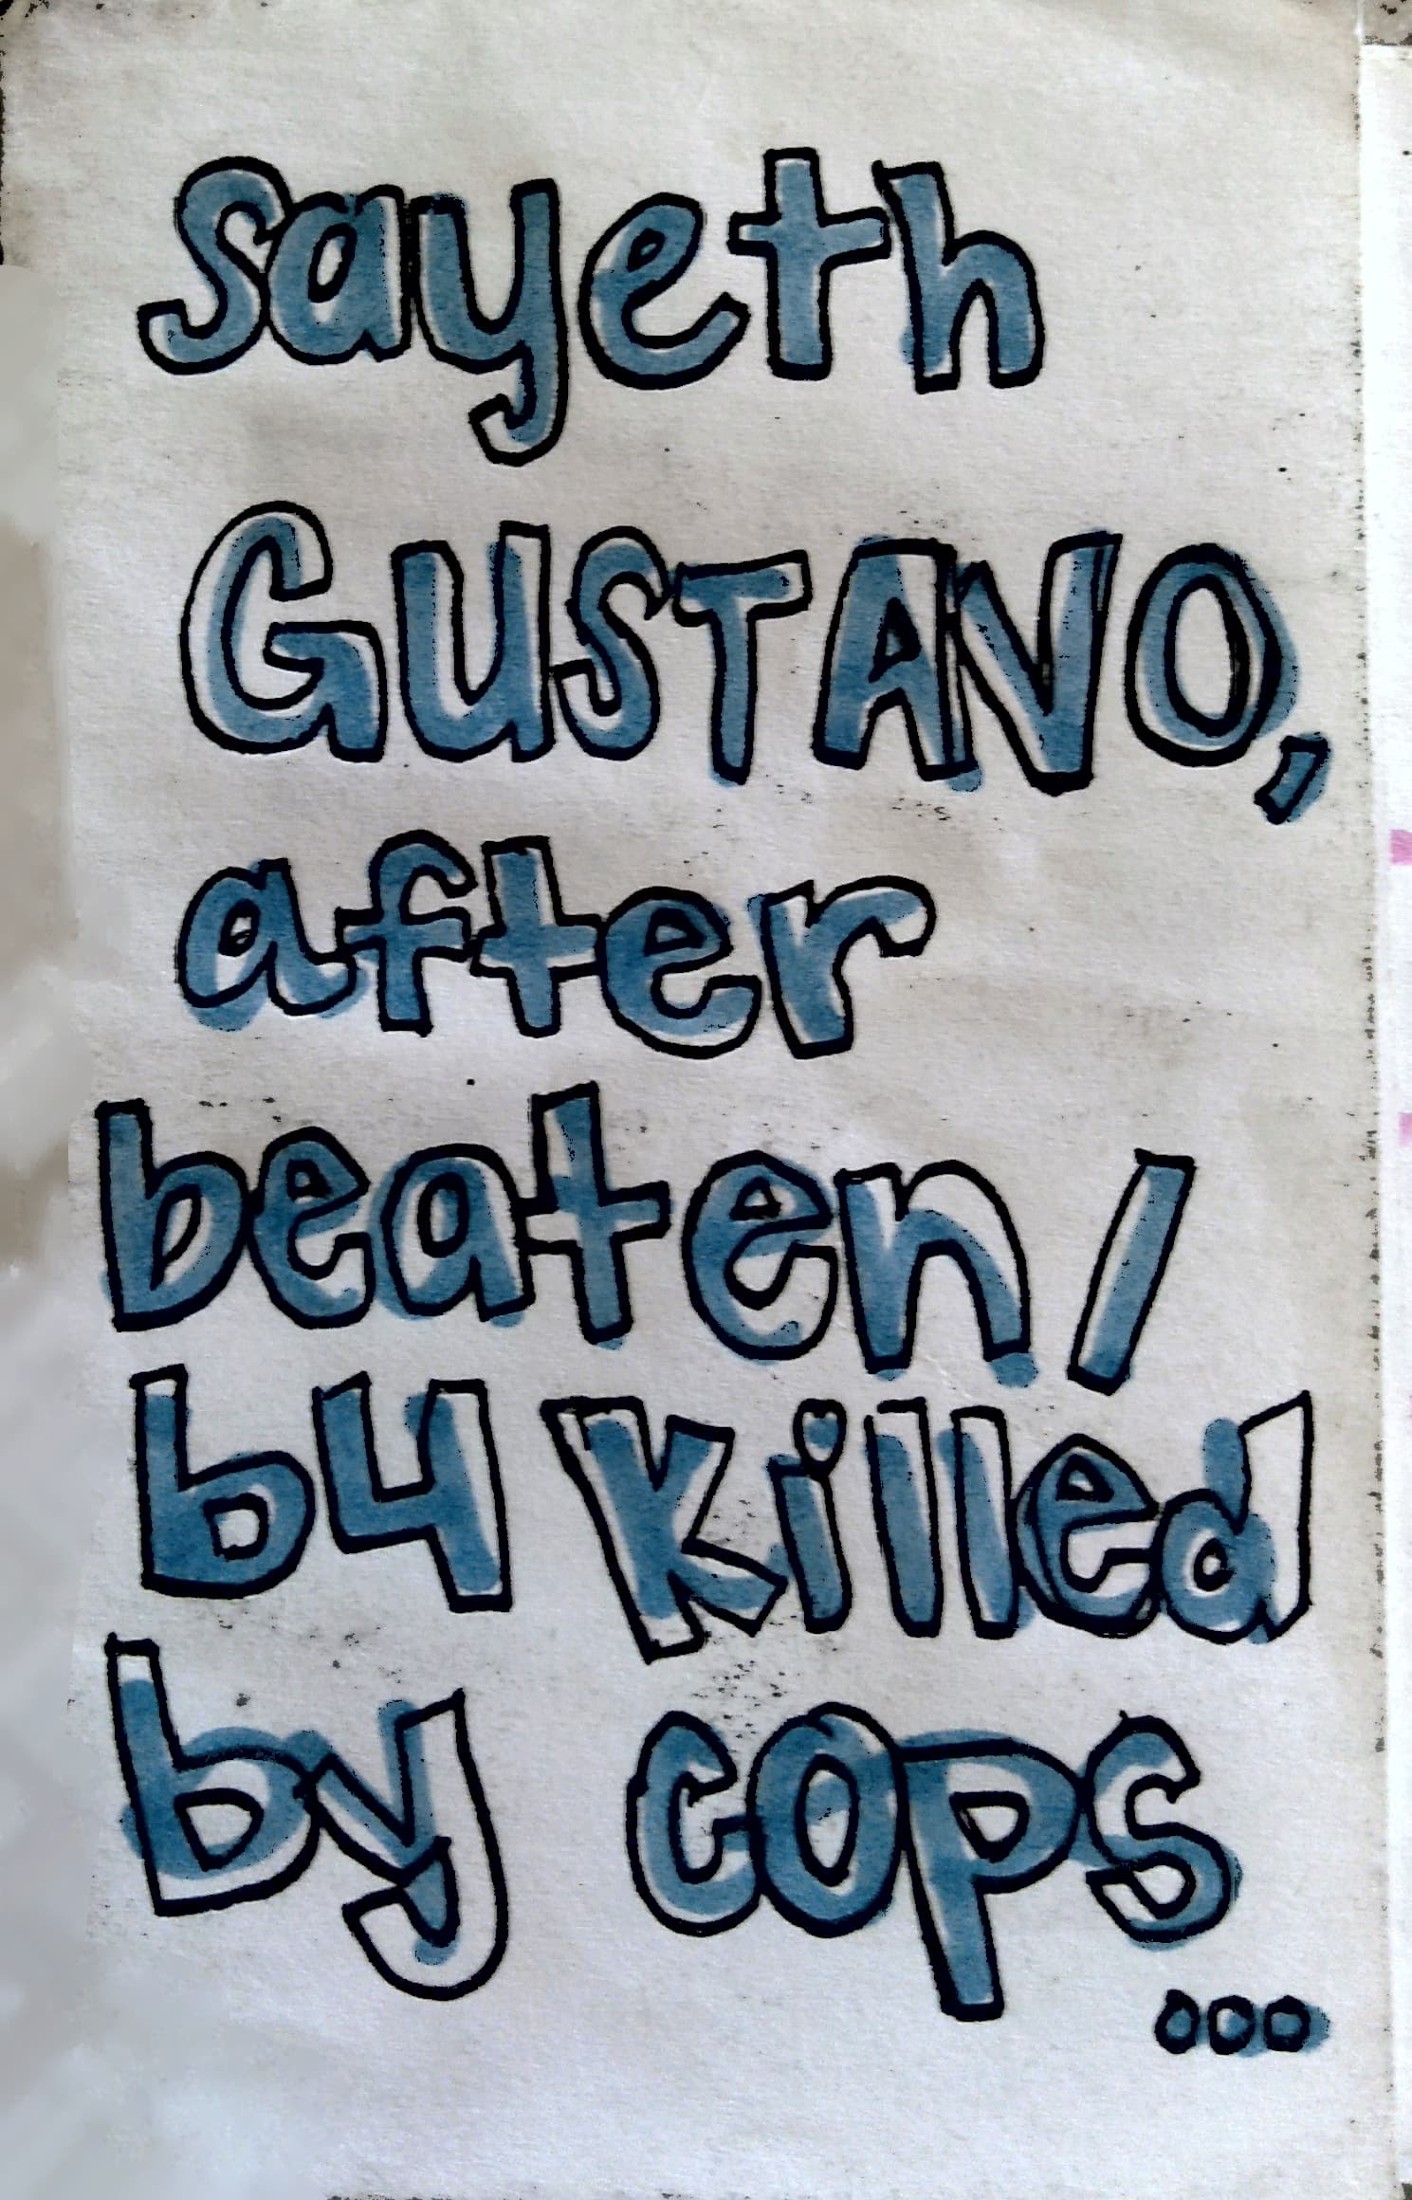 sayeth
GUSTAVO,
after
beaten /
b4 killed
by cops
...